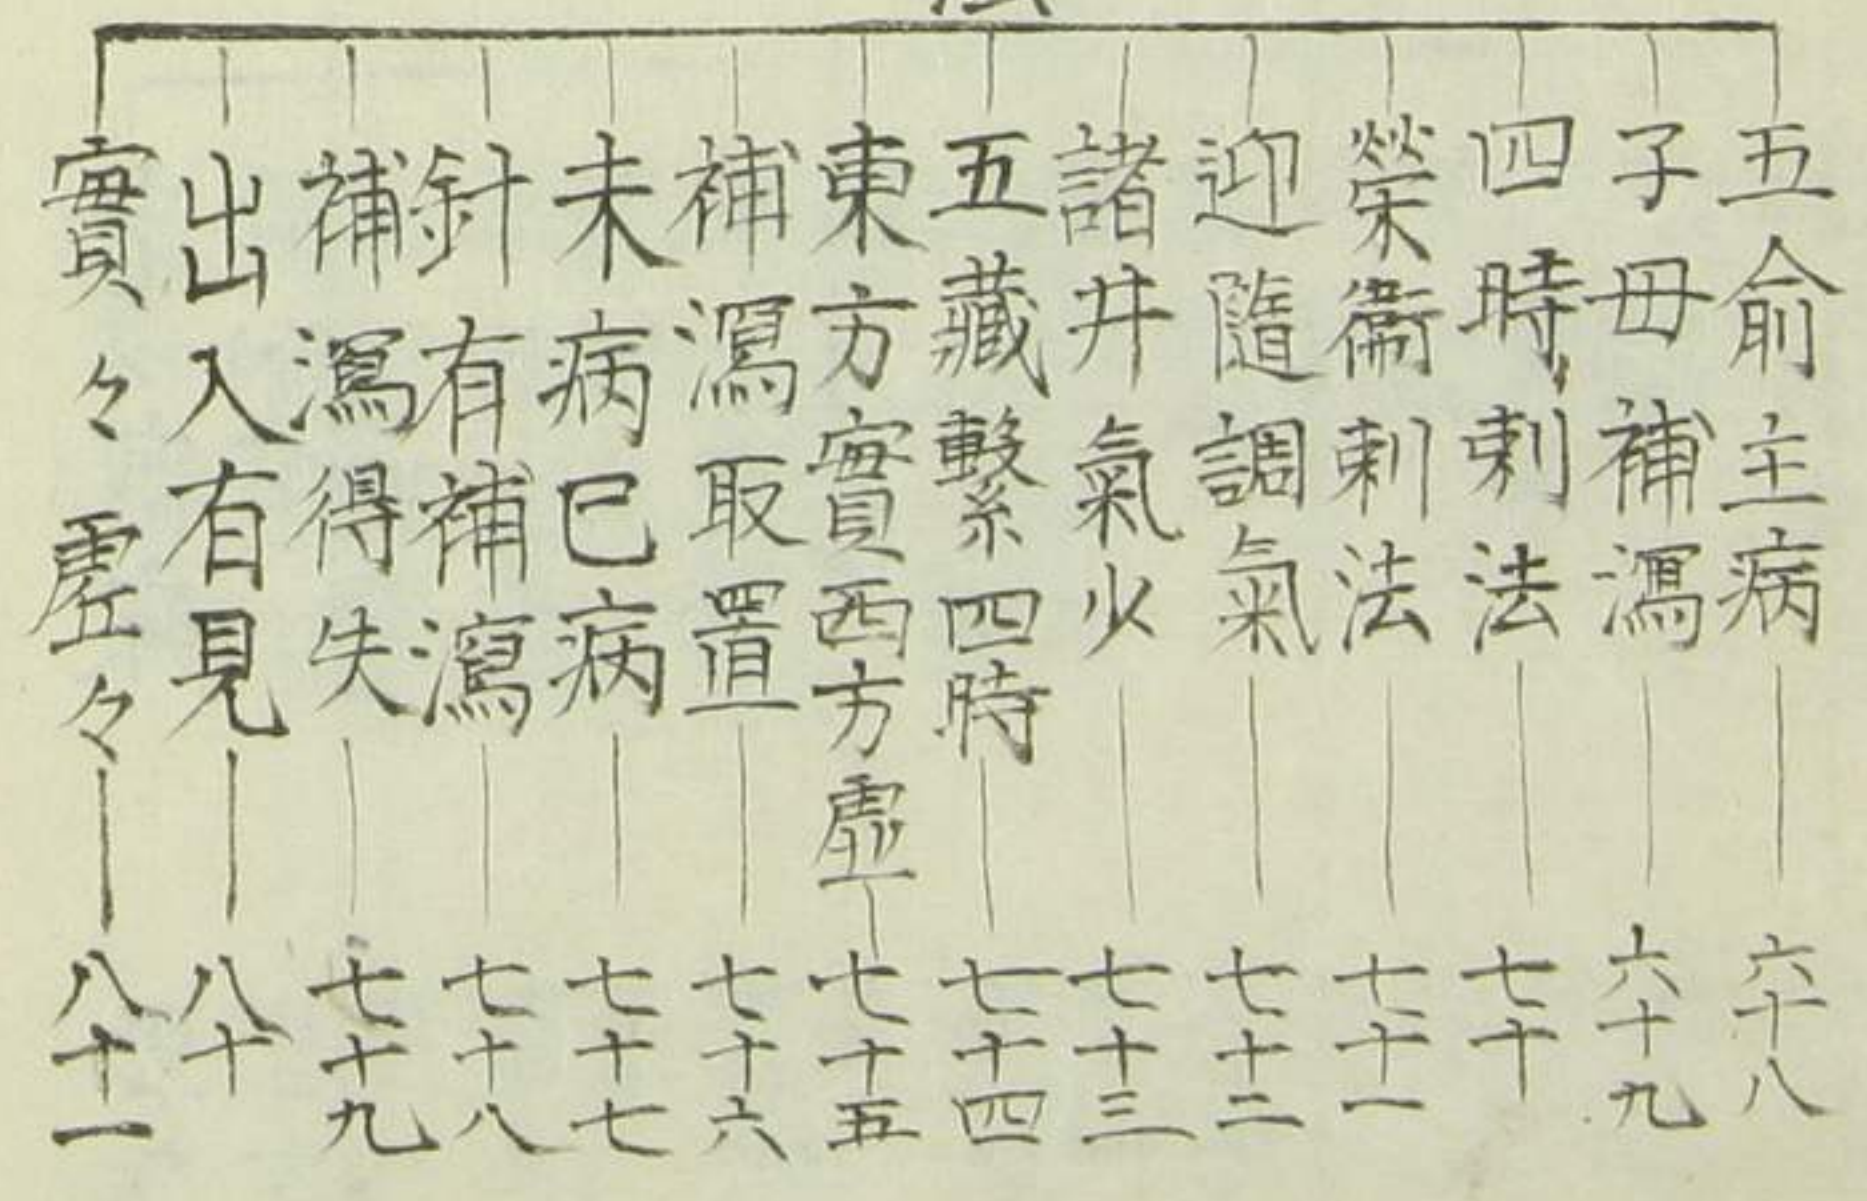 五俞主病 六十八
子母補瀉 六十九
四時刺法 七十
榮衛刺法 七十一
迎隨調氣 七十二
諸井氣少 七十三
五藏繫四時 七十四
東方實西方虛 七十五
補瀉取置 七十六
未病已病 七十七
針有補瀉 七十八
補瀉得失 七十九
出入有見 八十
實々虛々 八十一